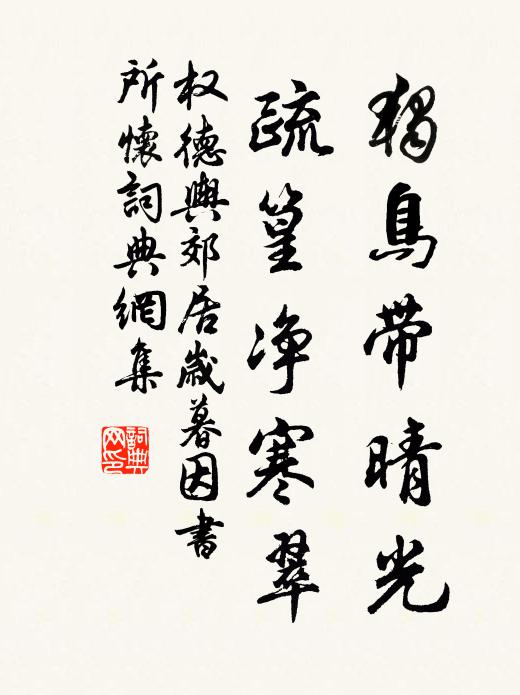 獨鳥帶晴光
疏篁净寒翠
权德輿郊居歲暮因書
所懷詞典網集
詞典
网印